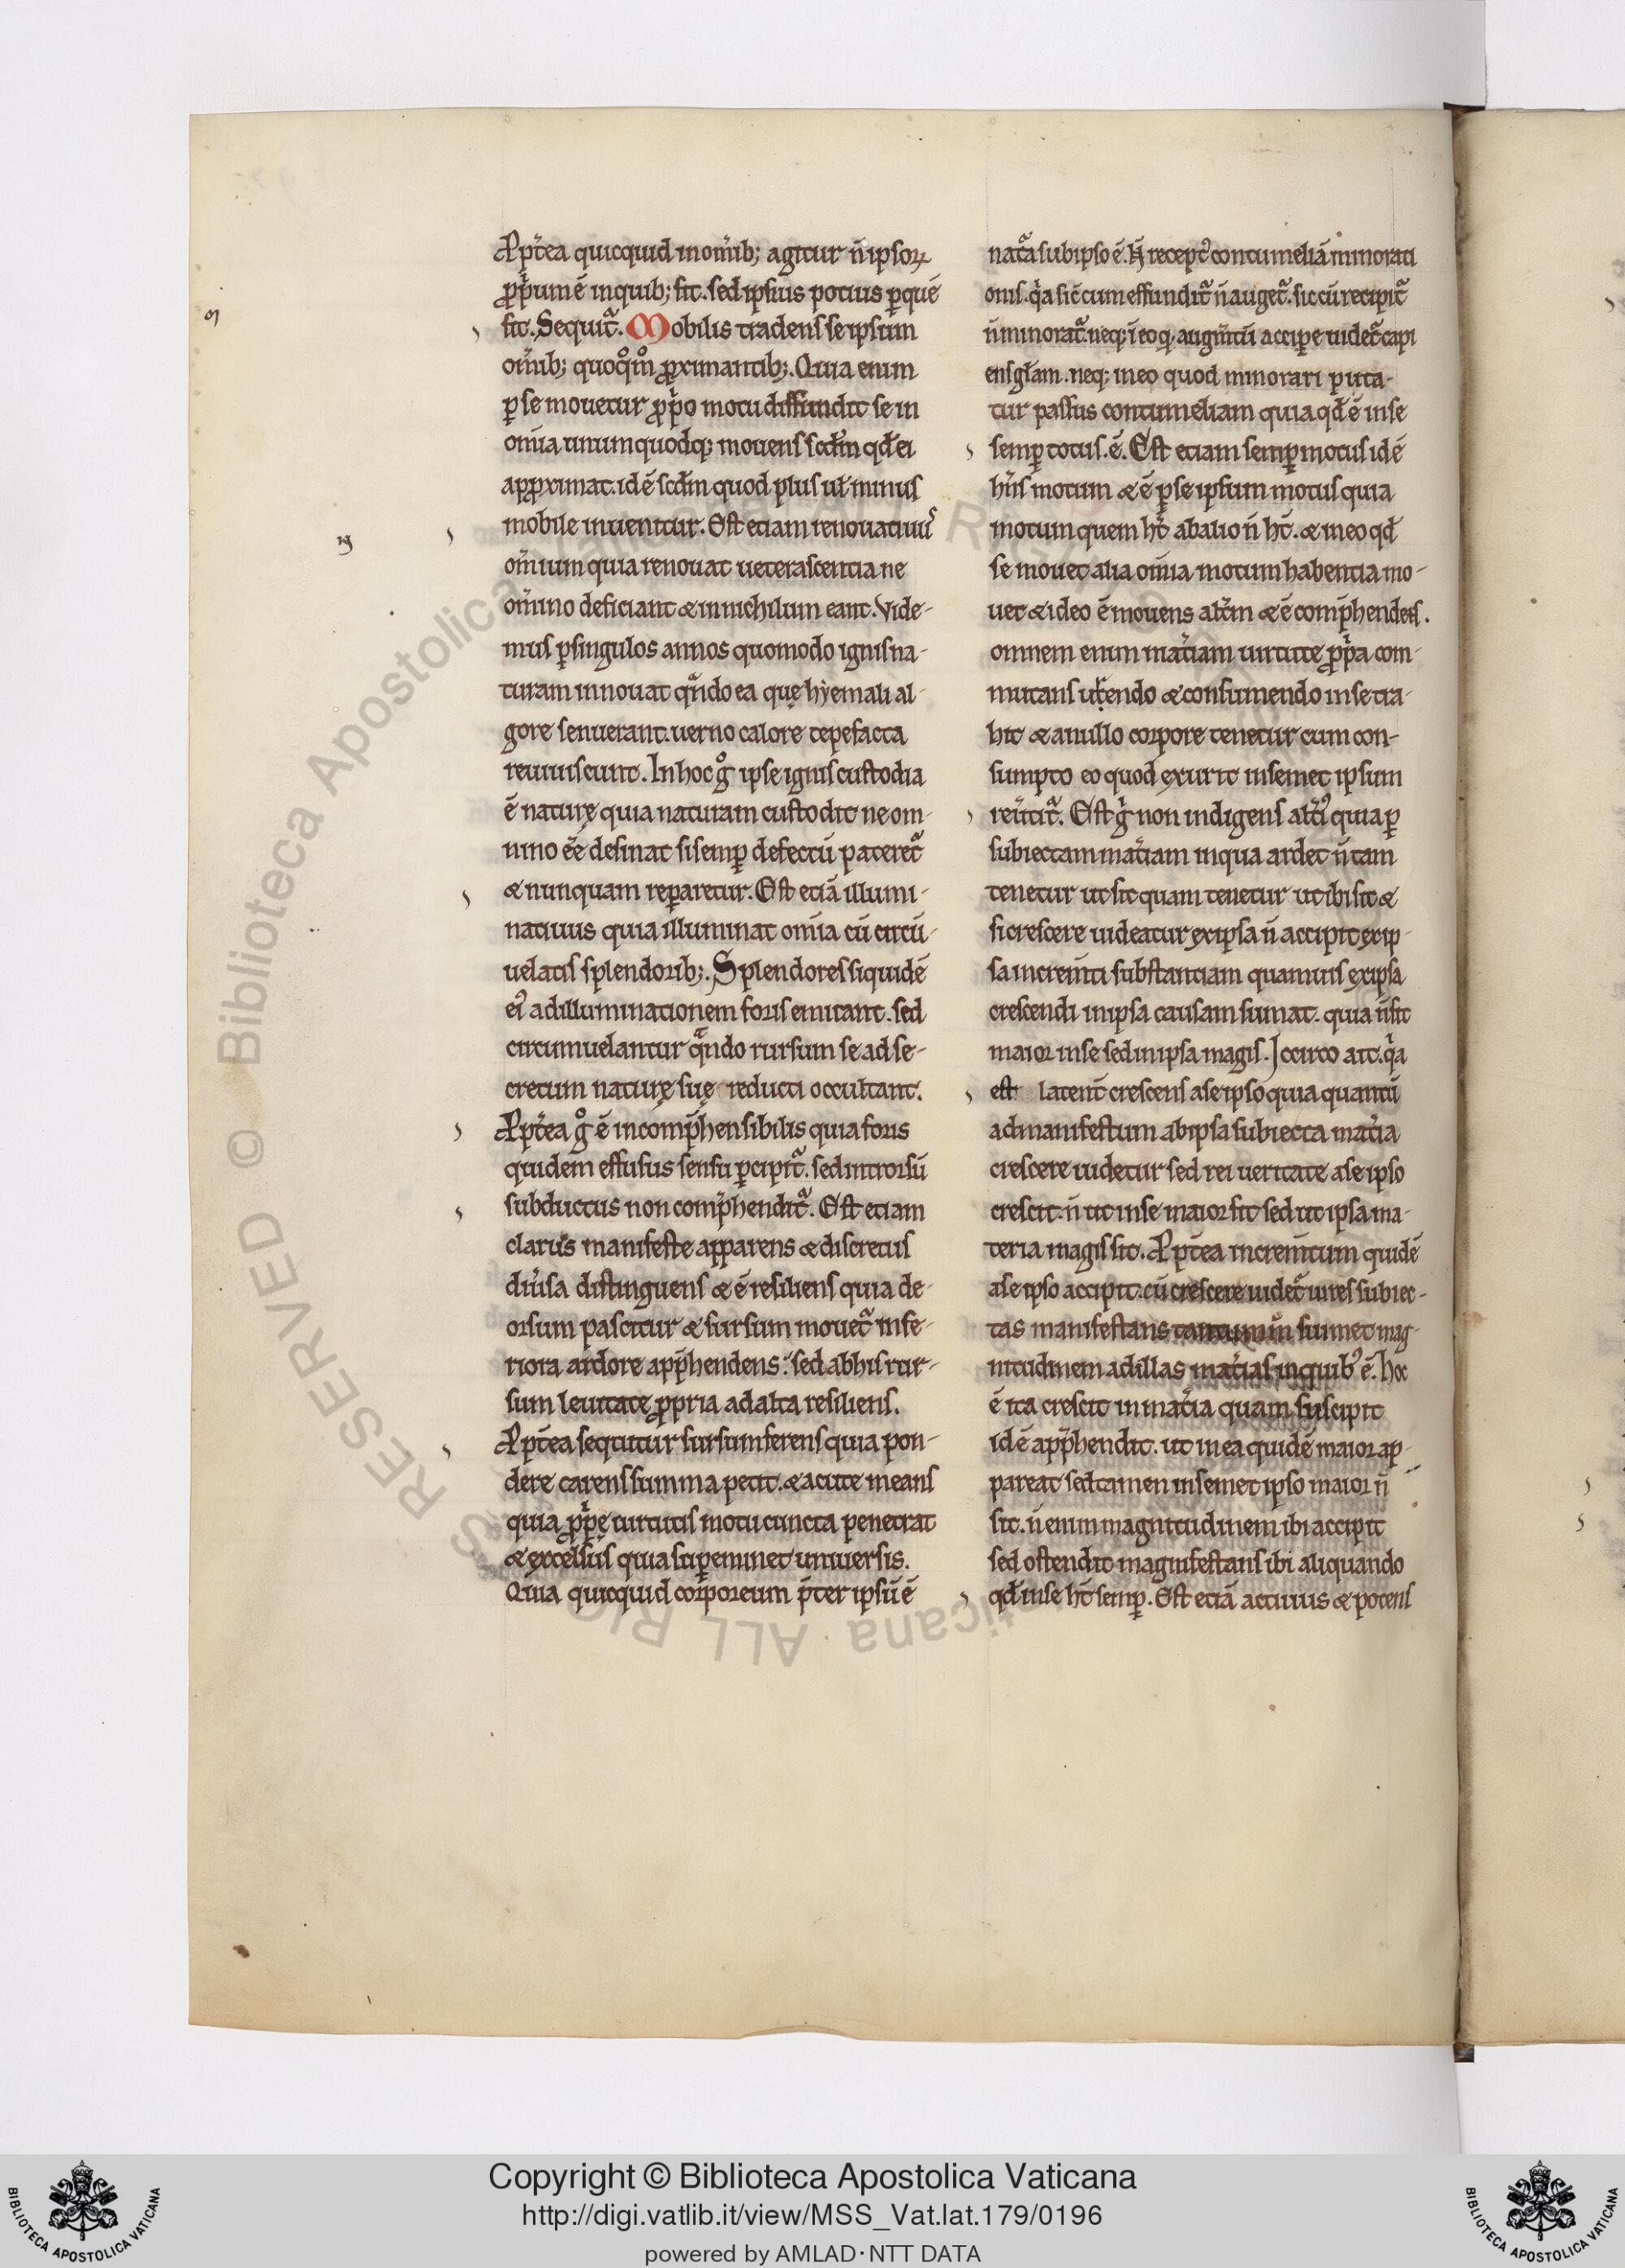 Apt̃ea quicquid inom̃ib; agitur ñ ipsoꝝ
ꝓpͥum ē inquib; fit. sed ipsius potius ꝑquē
fit. Sequit᷑. Mobilis tradens se ipsum
om̃ib; quoqͦmͦ ꝓximantib;. Quia enim
ꝑ se mouetur ꝓpͥo motu diffundit se in
om̃ia unumquodq; movens scd̃m qd̃ ei
apꝓximat. id ē scd̃m quod plus uł minus
mobile inuenitur. Est etiam renouatiuuˢ
om̃ium quia renouat ueterascentia ne
om̃ino deficiant & innichilum eant. Vide-
mus ꝑsingulos annos quomodo ignis na-
turam innouat qᷓndo ea quę hyemali al-
gore senuerant. uerno calore tepefacta
reuiuiscunt. In hoc gͦ ipse ignis custodia
ē naturę quia naturam custodit ne om-
nino eē desinat si semꝑ defectū pateret᷑
& nunquam reꝑaretur. Est etiā illumi-
natiuus quia illuminat om̃ia cū circū-
uelatis splendorib;. Splendores siquidē
eiꝰ ad illuminationem foris emitant. sed
circumuelantur qᷓndo rursum se ad se-
cretum naturę suę reducti occultant.
Apt̃ea gͦ ē incomp̃hensibilis quia foris
quidem effusus sensu ꝑcipit᷑. sed introrsū
subductus non comp̃hendit᷑. Est etiam
clarus manifeste apparens & discretus
diũsa distinguens & ē resiliens quia de-
orsum pascitur & sursum mouet᷑ infe-
riora ardore app̃hendens. sed ab his rur-
sum leuitate ꝓpria ad alta resiliens.
Apt̃ea seqtitur sursum ferens quia pon-
dere carens summa petit. & acute means
quia ꝓpͥę uirtutis motu cuncta penetrat
& excelsus quia suꝑeminet uniuersis.
Quia quicquid corporeum p̃ter ipsū ē
nat᷑a sub ipso ē. H̃ receptꝰ contumeliā minorati
onis. qͥa sic̃ cum effundit᷑ ñ auget᷑. sic cū recipit᷑
ñ minorat᷑. neq; ī eo q, augm̃tū acciꝑe uidet᷑ capi
ens gl̃am. neq; in eo quod minorari puta-
tur passus contumeliam quia qd̃ ē in se
semꝑ totus. ē. Est etiam semꝑ motus id ē
hñs motum & ē ꝑ se ipsum motus quia
motum quem ht̃ ab alio ñ ht̃. & in eo qd̃
se mouet alia om̃ia motum habentia mo-
uet & ideo ē mouens alt̃m & ē comp̃hendens.
omnem enim mat̃iam uirtute ꝓpͥa com-
mutans urendo & consumendo in se tra-
hit & a nullo corpore tenetur cum con-
sumpto eo quod exurit in semet ipsum
reũtit᷑. Est gͥ non indigens alt̃iꝰ quia ꝑ
subiectam mat̃iam in qua ardet ñ tam
tenetur ut sit quam tenetur ut ibi sit &
si crescere uideatur ex ipsa ñ accipit ex ip-
sa increm̃ti substantiam quamuis ex ipsa
crescendi in ipsa causam sumat. quia ñ fit
maior in se sed in ipsa magis. Iccirco ait. qͥa
est latent̃ crescens a se ipso quia quantū
ad manifestum ab ipsa subiecta mat̃ia
crescere uidetur sed rei ueritate a se ipso
crescit. ñ ut in se maior fit sed ut ipsa ma-
teria magis sit. Apt̃ea increm̃tum quidē
a se ipso accipit. cū crescere uidet᷑ uires subiec-
tas manifestans tantum suimet mag-
nitudinem ad illas mat̃ias in quibꝰ ē. hoc
ē ita crescit in mat̃ia quam suscipit
id ē app̃hendit. ut in ea quidē maior ap-
pareat sed tamen in semet ipso maior ñ
sit. ñ enim magnitudinem ibi accipit
sed ostendit magnifestans ibi aliquando
qd̃ in se ht̃ semꝑ. Est etiā actiuus & potens
© Biblioteca Apostolica Vaticana ALL RIGHTS RESERVED
Copyright © Biblioteca Apostolica Vaticana
http://digi.vatlib.it/view/MSS_Vat.lat.179/0196
powered by AMLAD·NTT DATA
BIBLIOTECA APOSTOLICA VATICANA
BIBLIOTECA APOSTOLICA VATICANA